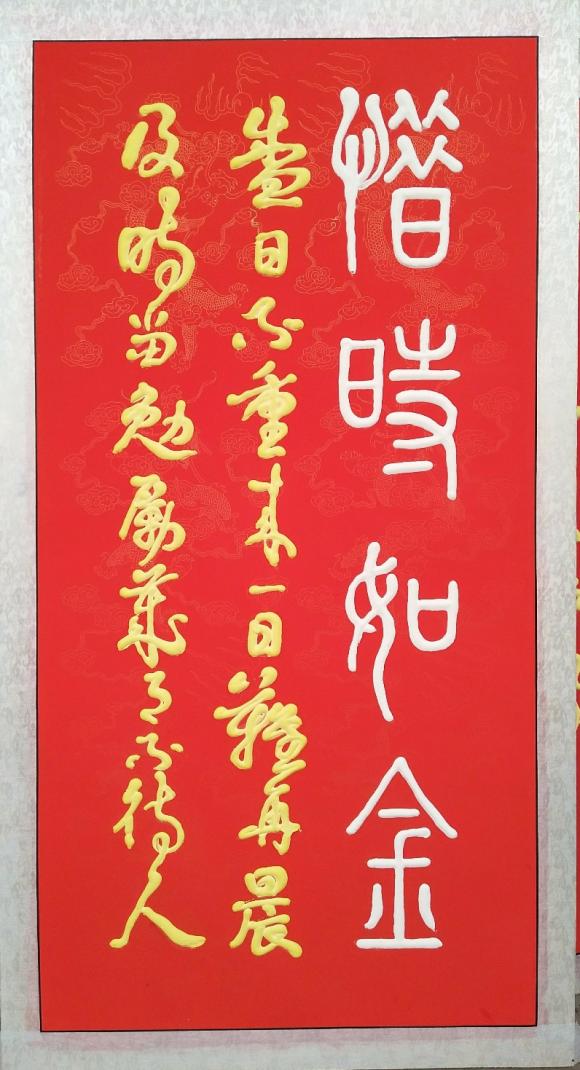 惜時如金
盛日不重来一日難再晨
及時當勉厲歲月不待人